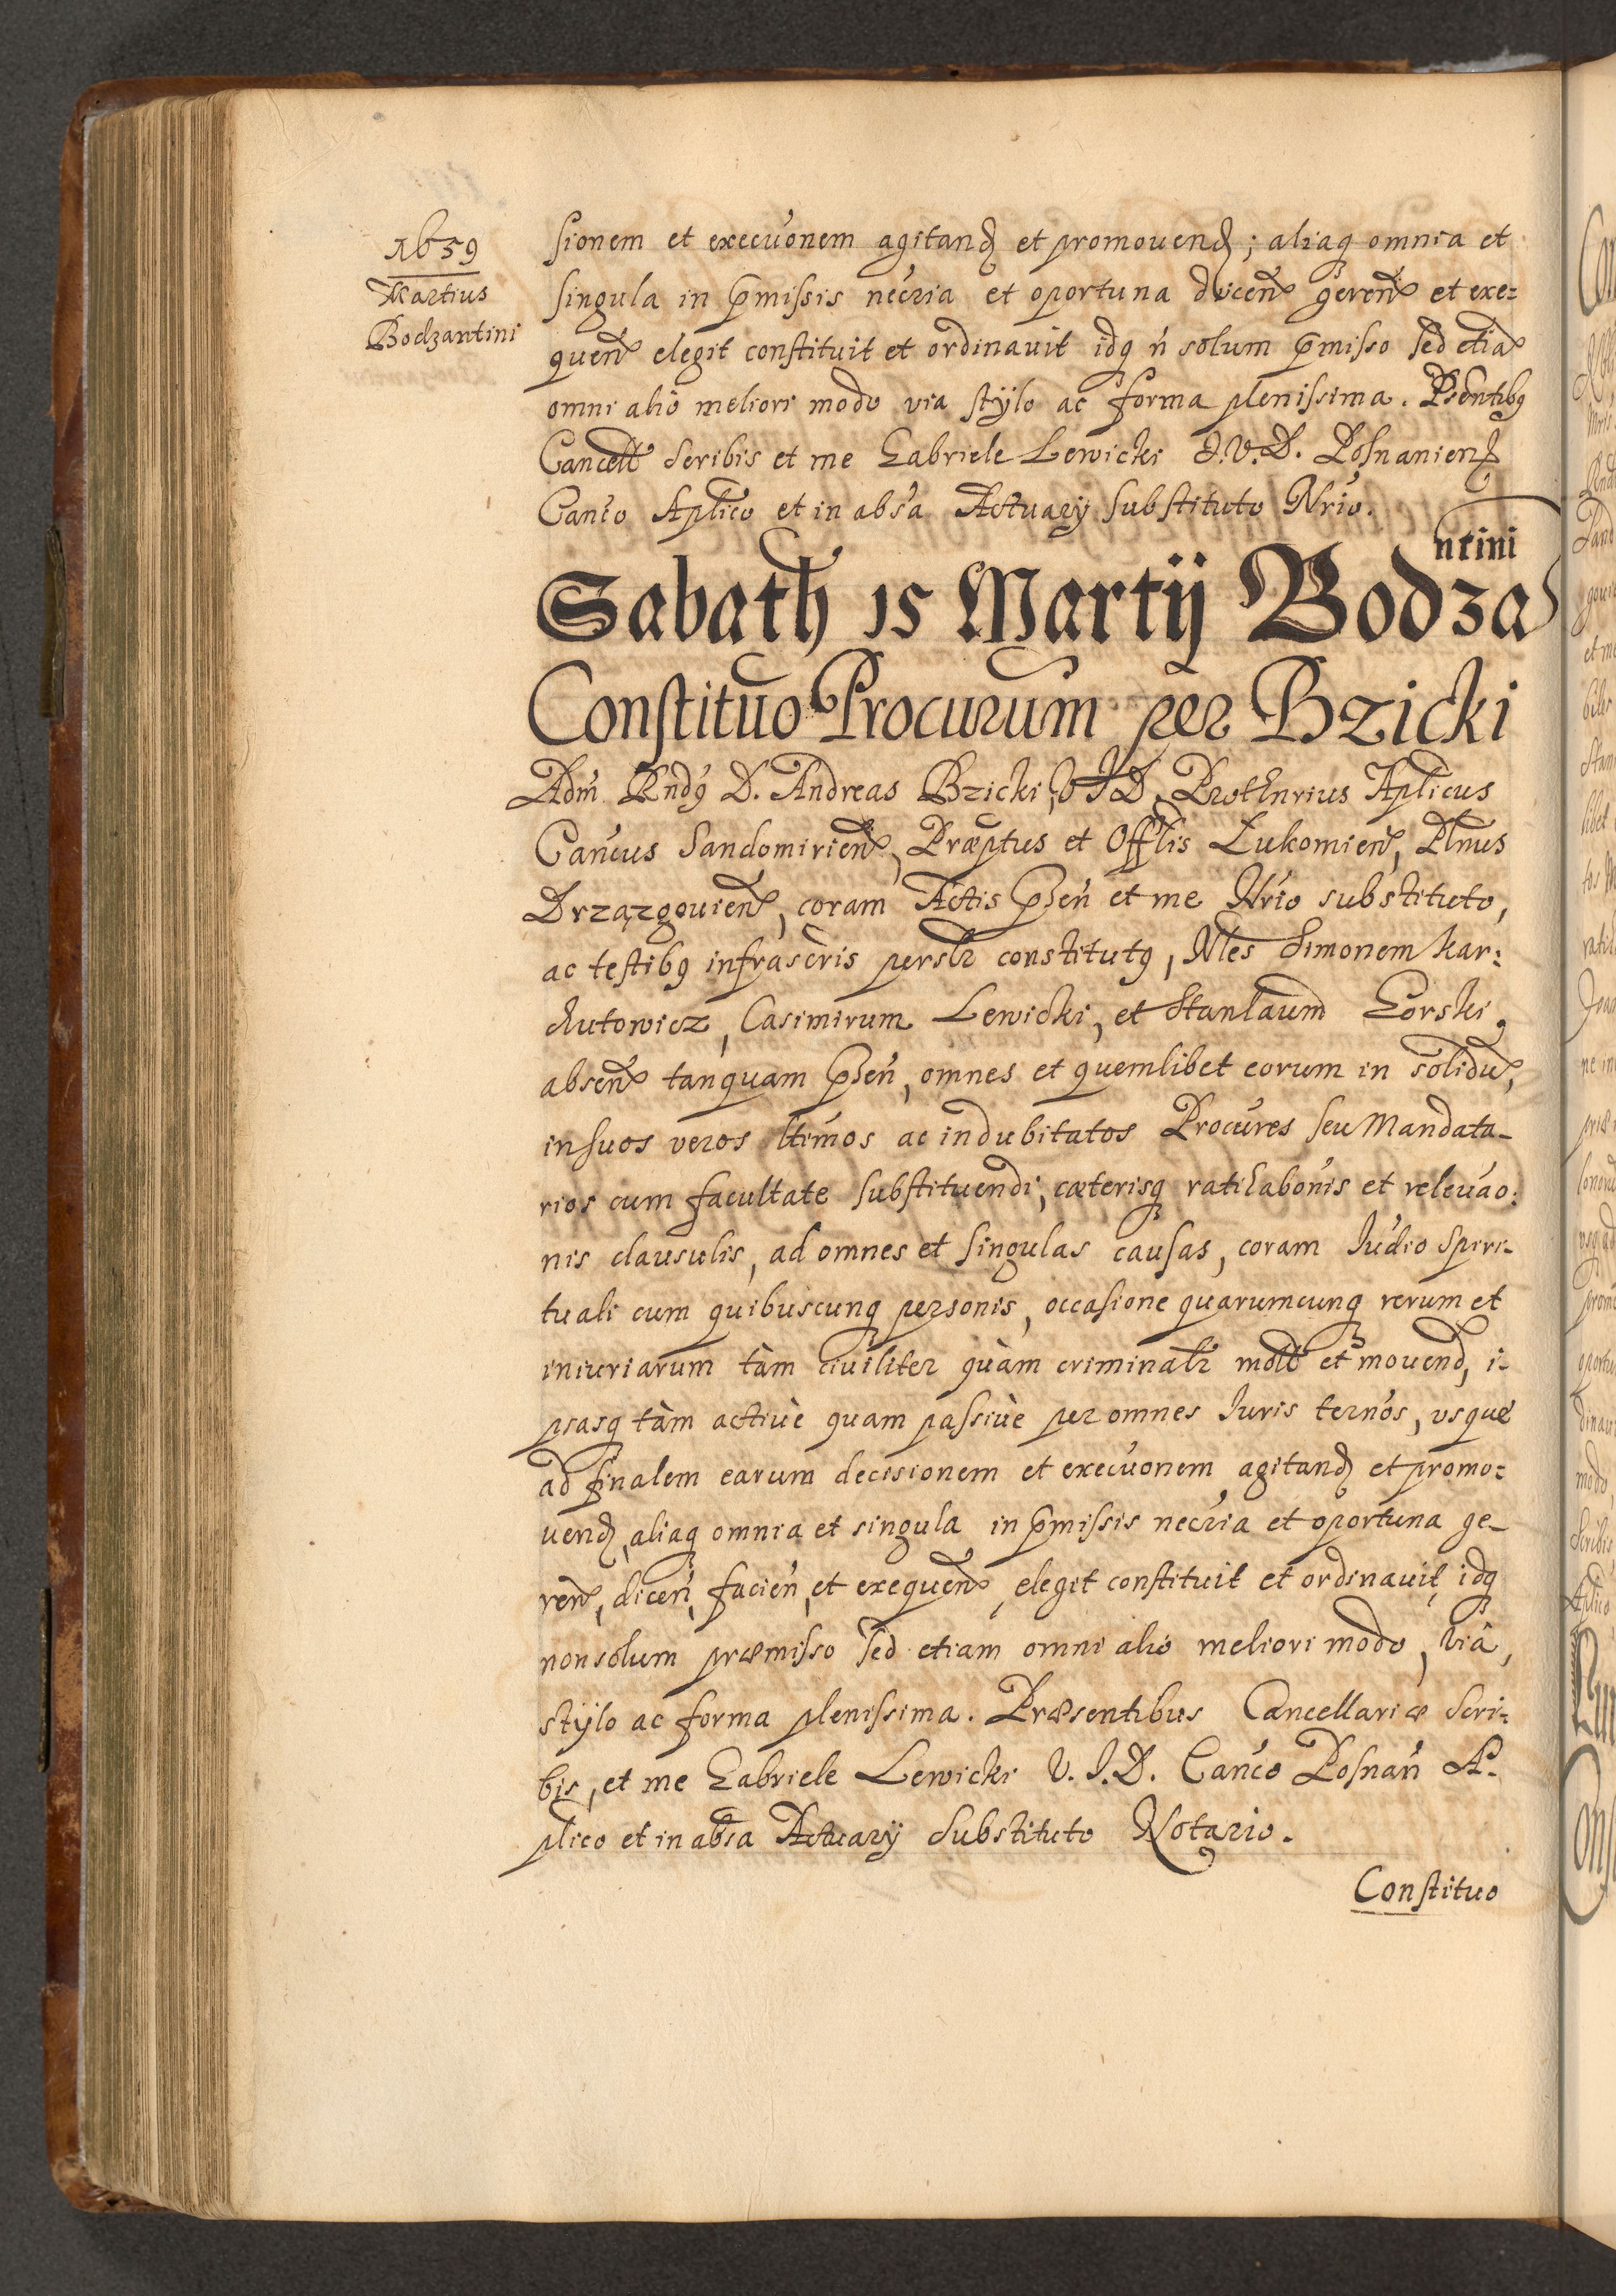 1659
Martius
Bodzantini
sionem et execuonem agitand et promouend; aliaq omnia et
singula in pmissis necria et oportuna dicen geren et exe=
quen elegit constituit et ordinauit idq ń solum pmisso sed etia
omni alio meliori modo via stylo ac forma plenissima. Psentibq
Cancell Scribis et me Gabriele Lewicki J.V.D. Posnanien
Canco Aplico et in absa Actuarÿ substituto Nrio.
Sabath 15 Martij Bodza
ntini
Constituo Procurum per Bzicki
Adm Rndq D. Andreas Bzicki, V J D, Prothnrius Aplicus
Cancus Sandomirien, Præptus et Offlis Lukomien, Plnus
Drzązgouien, coram Actis pſen et me Nrio substituto,
ac testibq infrascris perslr constitutq, Nles Simonem Kar=
chutowicz, Casimirum Lewicki, et Stanlaum Gorski,
absen tanquam pſen, omnes et quemlibet eorum in solidu,
in suos veros ltimos ac indubitatos Procures seu Mandata-
rios cum facultate substituendi, cæterisq ratihabonis et releuao=
nis clausulis, ad omnes et singulas causas, coram Iudio Spiri-
tuali cum quibuscunq personis, occasione quarumcunq rerum et
iniuriarum tàm ciuiliter quàm criminalr mott et mouend, i-
psasq tàm actiuè quam passiuè per omnes Iuris ternos, vsque
ad finalem earum decisionem et execuonem agitand et promo=
uend, aliaq omnia et singula in pmissis necria et oportuna ge-
ren, dicen, facien, et exequen, elegit constituit et ordinauit, idq
non solum præmisso sed etiam omni alio meliori modo, viâ,
stÿlo ac forma plenissima. Præsentibus Cancellariæ Scri=
bis, et me Gabriele Lewicki V. J. D. Canco Posnan A-
plico et in absa Actuarÿ Substituto Notario.
Constituo